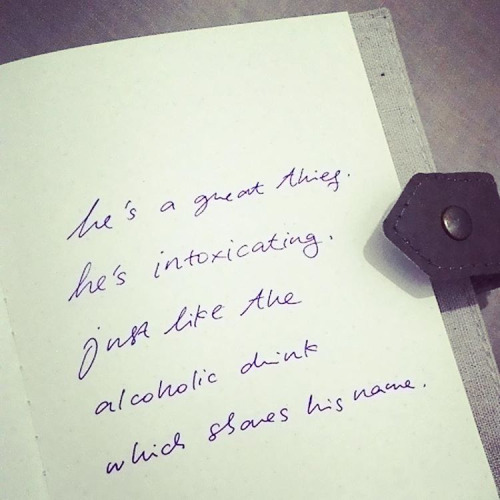 he's a great thief.
he's intoxicating.
just like the
alcoholic drink
which shares his name.